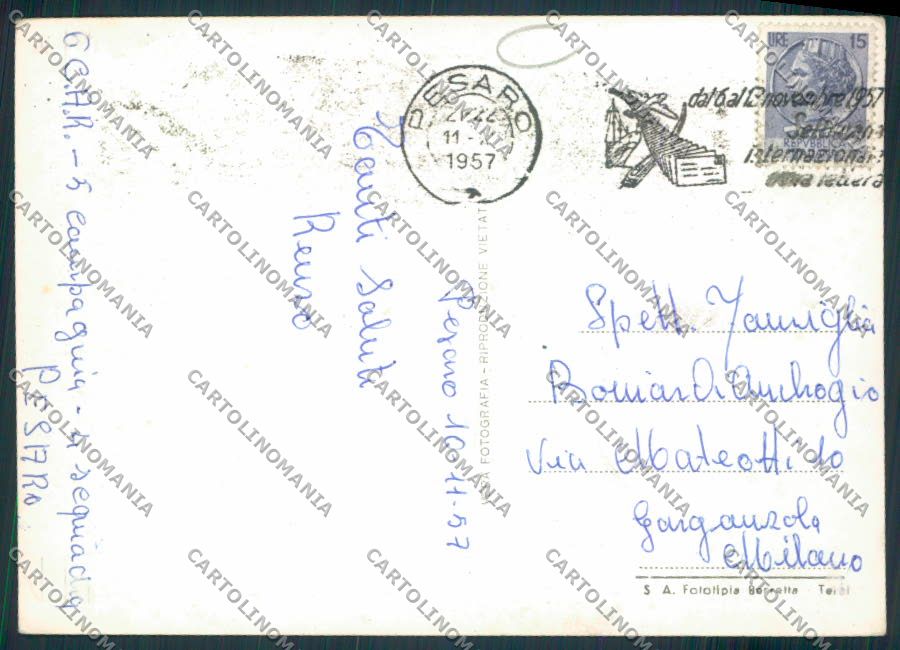 6 C.A.R. - 5 compagnia - 4 squadra
PESARO
Tanti Saluti
Renzo
Pesaro 10-11-57
VERA FOTOGRAFIA - RIPRODUZIONE VIETATA
PESARO
21-22
11
1957
dal 6 al 12 novembre 1957
Settimana
internazionale
della lettera
LIRE 15
REPVBBLICA
Spett. Famiglia
Ambrogio
Via Mateotti 10
Milano
S. A. Fototipia Berretta Terni
CARTOLINOMANIA